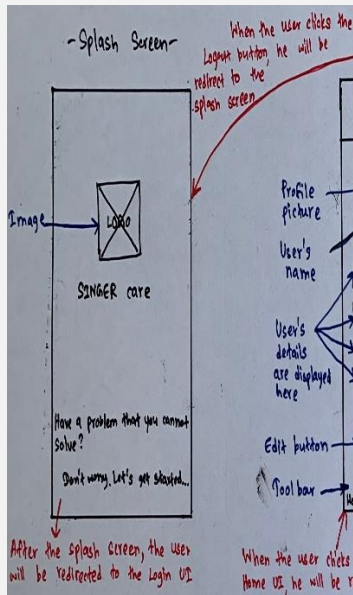 -Splash Screen-
When the user clicks the
Logout button, he will be
redirect to the
splash screen
Image
LOGO
SINGER care
Have a problem that you cannot
solve?
Don't worry. Let's get started...
After the splash screen, the user
will be redirected to the Login UI
Profile
picture
User's
name
User's
details
are displayed
here
Edit button
Toolbar
When the user clicks
Home UI, he will be